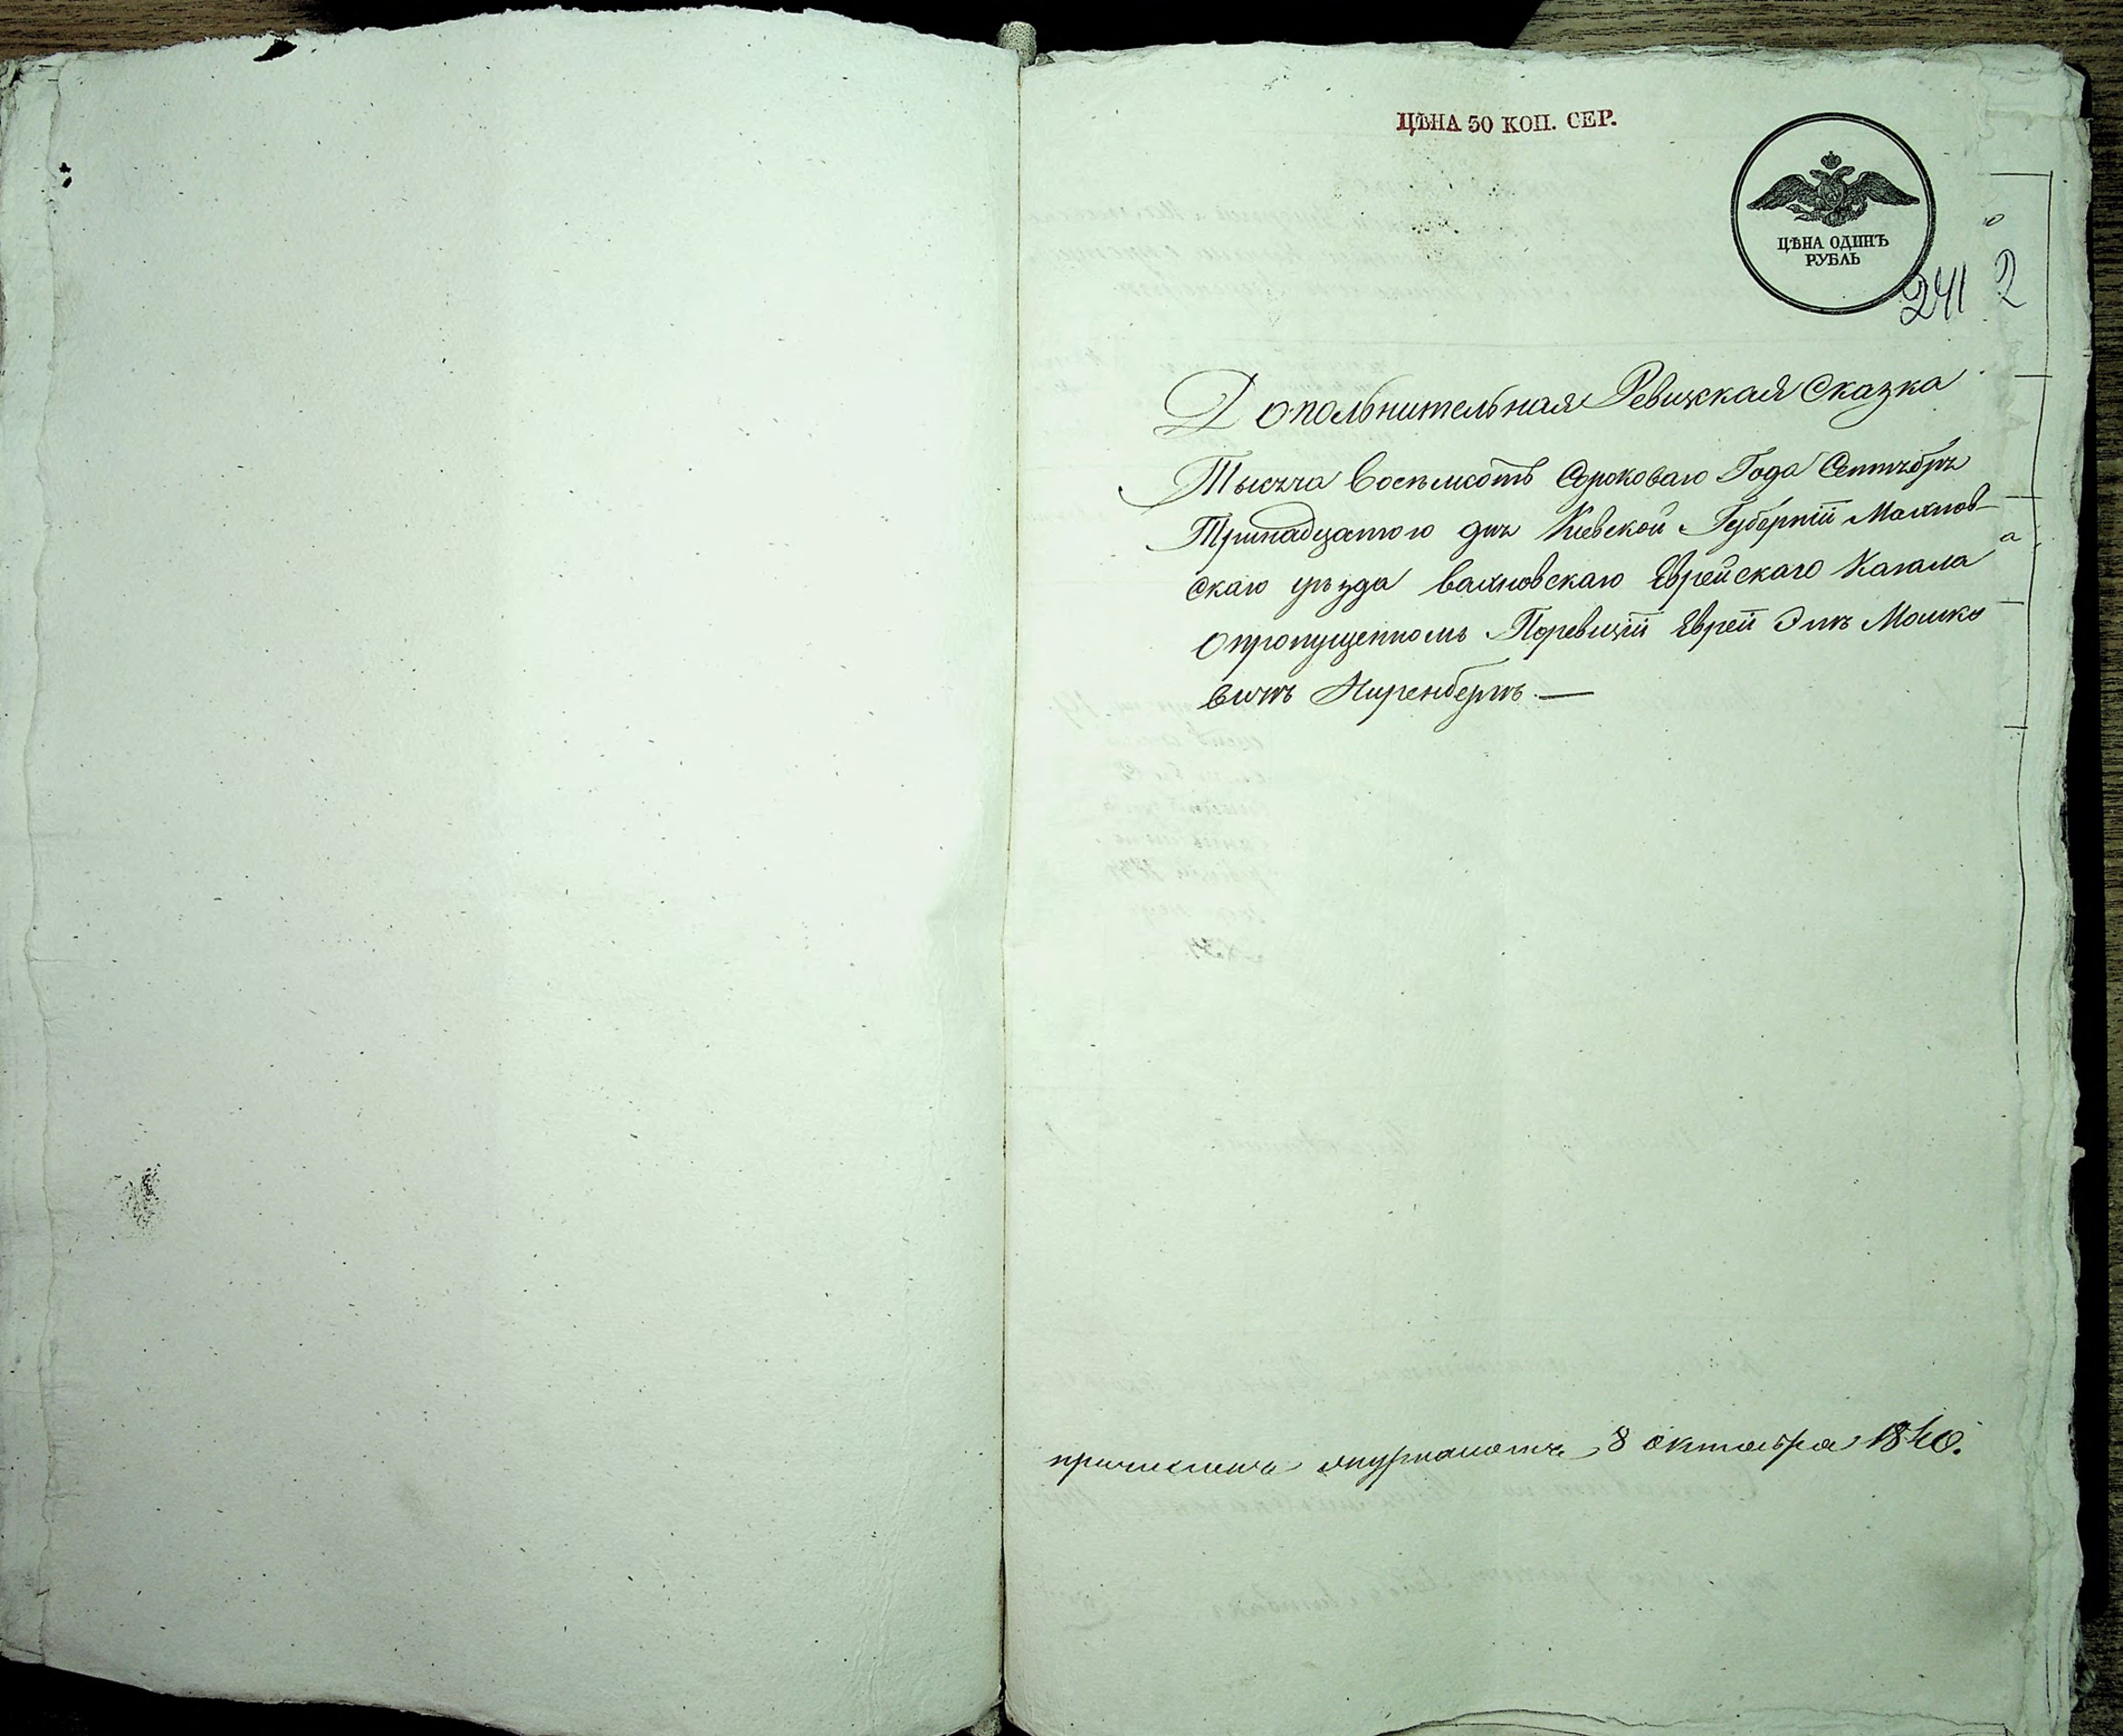 ЦѢНА 50 КОП. СЕР.
ЦѢНА ОДИНЪ
РУБЛЬ
241 2
Дополнительная Ревижкая Сказка
Тысяча Восемсотъ Сороковаго Года Сентября
Тринадцатого дня Кіевской Губерніи Махнов-
скаго уѣзда Вахновскаго Еврейскаго Кагала
О пропущенномъ По ревизіи Еврей Мошко
вичъ Ниренбергъ. —
8 октобра 1840.